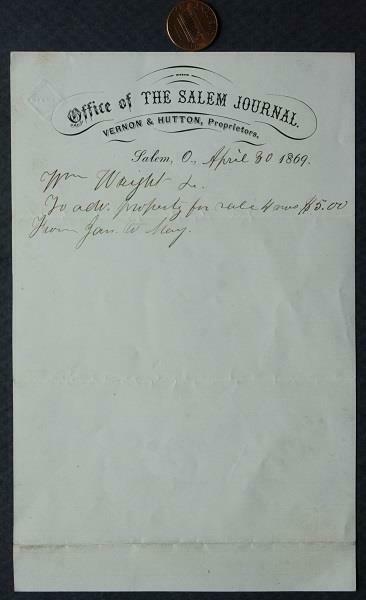 Office of THE SALEM JOURNAL.
VERNON & HUTTON, Proprietors.
Salem, O., April 30 1869.
Wm Wright Dr.
To adv. property for sale 4 mos $5.00
From Jan. to May.